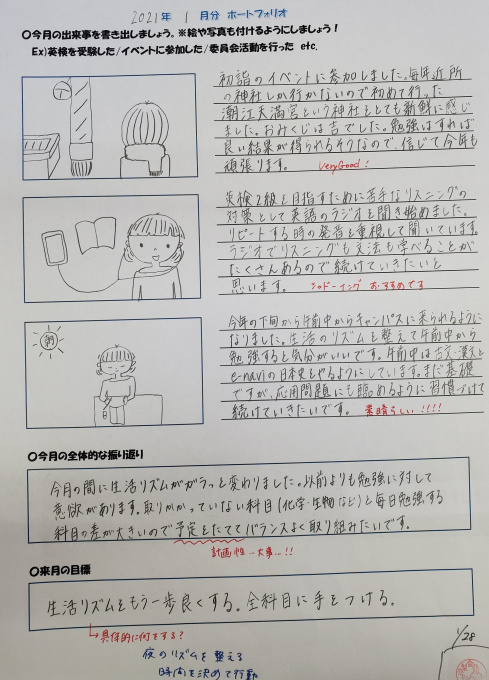 2021年 1 月分 ポートフォリオ
〇今月の出来事を書き出しましょう。※絵や写真も付けるようにしましょう！
Ex)英検を受験した/イベントに参加した/委員会活動を行った etc.
初詣のイベントに参加しました。毎年近所
の神社しか行かないので初めて行った
潮江天満宮という神社をとても新鮮に感じ
ました。おみくじは吉でした。勉強はすれば
良い結果が得られるそうなので、信じて今年も
頑張ります。 Very Good!
英検2級を目指すために苦手なリスニングの
対策として英語のラジオを聞き始めました。
リピートする時の発音を重視して聞いています。
ラジオでリスニングも文法も学べることが
たくさんあるので続けていきたいと
思います。 シャドーイング おすすめです
今年の下旬から午前中からキャンパスに来られるように
なりました。生活のリズムを整えて午前中から
勉強すると気分がいいです。午前中は古文・漢文と
e-naviの日本史をやるようにしています。まだ基礎
ですが、応用問題にも臨めるように習慣づけて
続けていきたいです。 素晴らしい!!!!
朝
〇今月の全体的な振り返り
今月の間に生活リズムがガラっと変わりました。以前よりも勉強に対して
意欲があります。取りかかっていない科目(化学・生物など)と毎日勉強する
科目の差が大きいので予定をたててバランスよく取り組みたいです。
計画性…大事…!!
〇来月の目標
生活リズムをもう一歩良くする。全科目に手をつける。
具体的に何をする?
夜のリズムを整える
時間を決めて行動
1/28